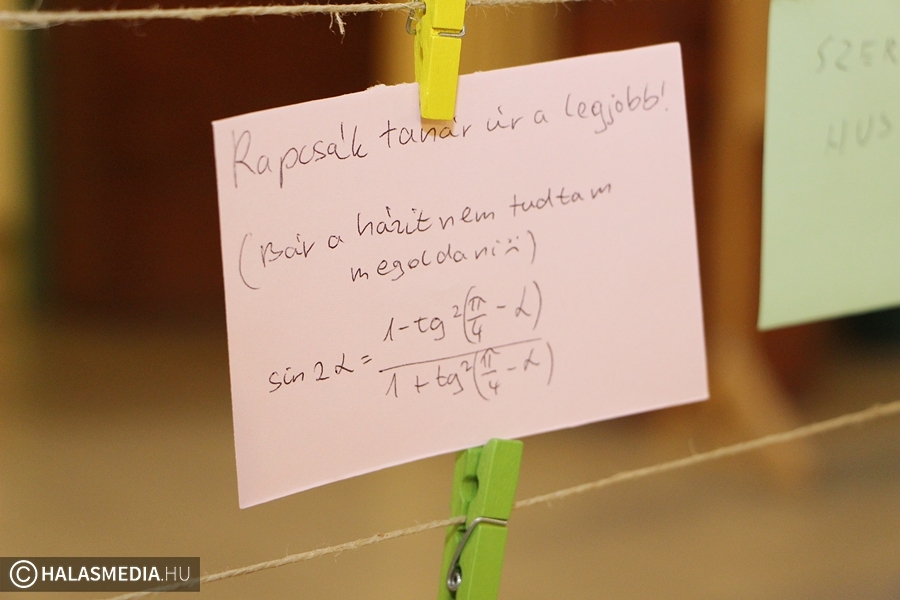 Rapcsák tanár úr a legjobb!
(Bár a házit nem tudtam
megoldani :()
sin 2α = (1 - tg²(π/4 - α)) / (1 + tg²(π/4 - α))
SZER
HUS
©HALASMEDIA.HU